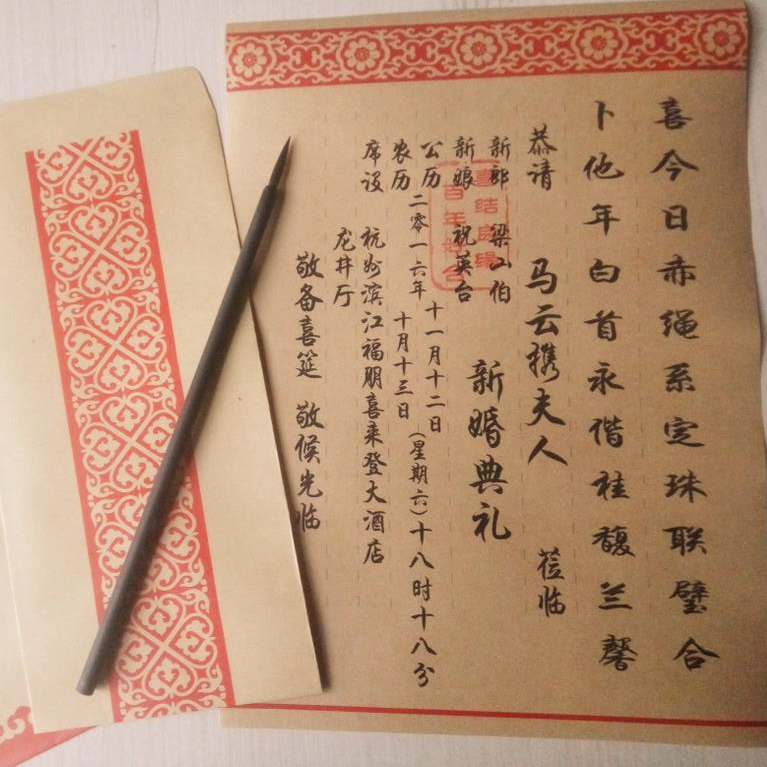 喜今日赤绳系定珠联璧合
卜他年白首永偕桂馥兰馨
恭请 马云携夫人 莅临
新郎 梁山伯
新娘 祝英台
新婚典礼
公历
农历
二零一六年
十一月十二日
十月十三日
（星期六）十八时十八分
席设 杭州滨江福朋喜来登大酒店
龙井厅
敬备喜筵 敬候光临
喜结良缘
百年好合